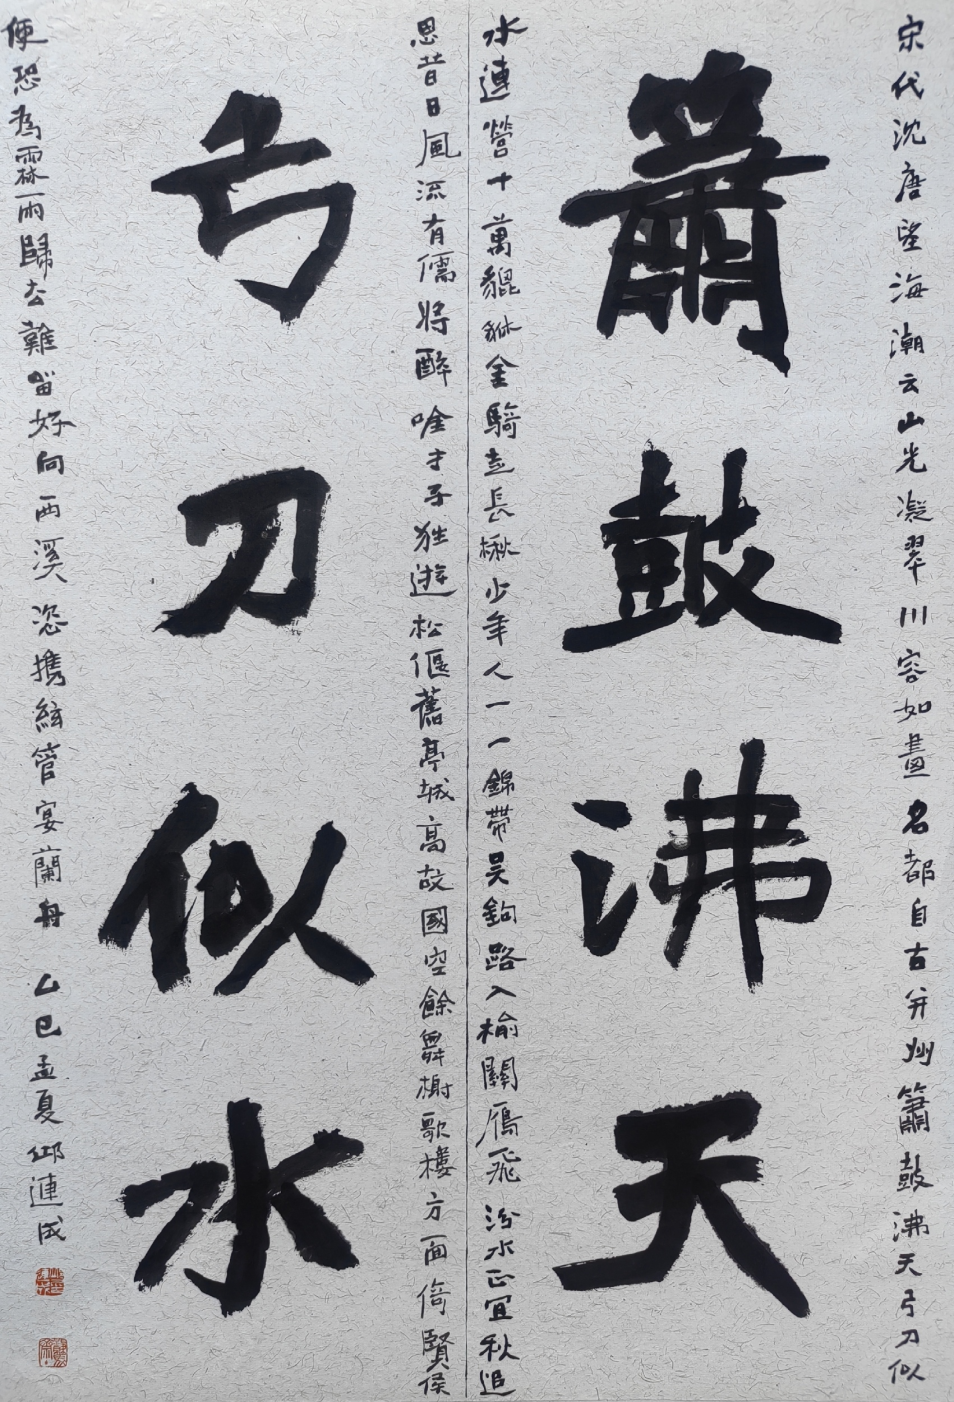 宋代沈唐望海潮云山光凝翠川容如畫名都自古并州簫鼓沸天弓刀似
簫鼓沸天
水連營十萬貔貅金騎走長楸少年人一一錦帶吳鉤路入榆關雁飛汾水正宜秋追
思昔日風流有儒將醉唫才子狂遊松偃舊亭城高故國空餘舞榭歌樓方面倚賢侯
弓刀似水
便恐為霖雨歸去難留好向西溪恣携絃管宴蘭舟 乙巳孟夏邱連成